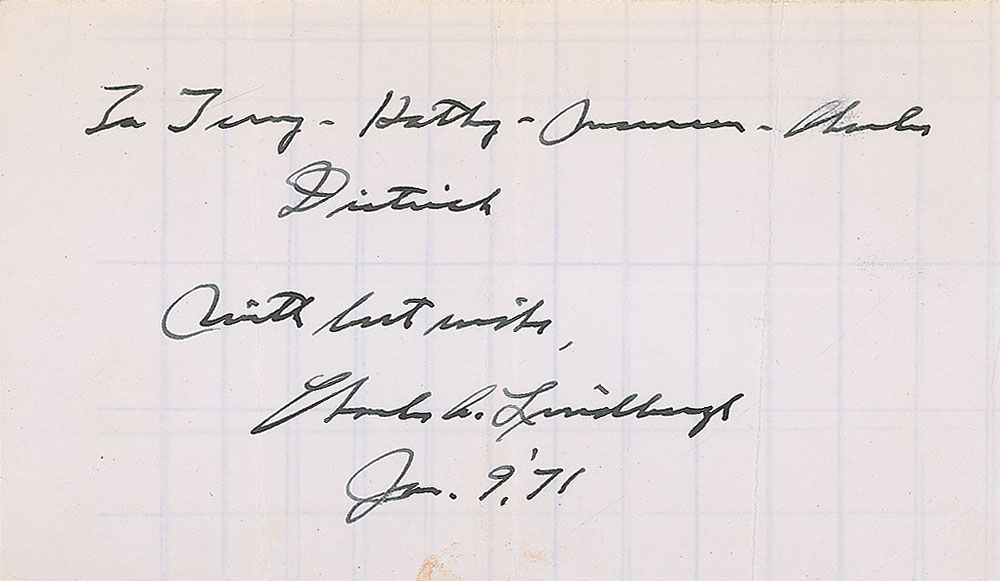 To Terry - Kathy - Charles
Dietrich
With best wishes,
Charles A. Lindbergh
Jan. 9, '71